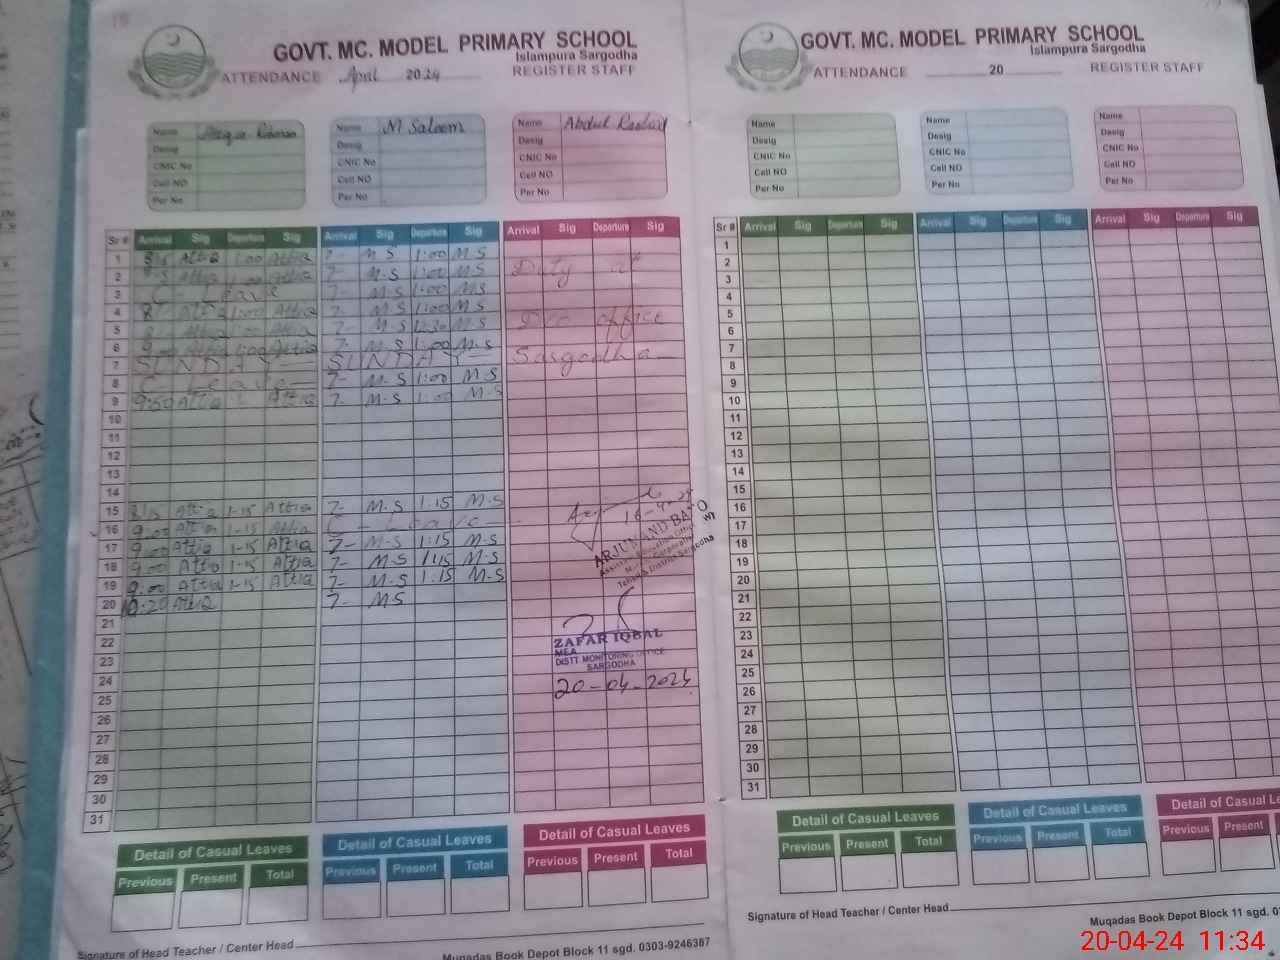 GOVT. MC. MODEL PRIMARY SCHOOL
Islampura Sargodha
ATTENDANCE April 2024 REGISTER STAFF
Name Name M Saleem Name Abdul Rashid
Desig Desig Desig
CNIC No CNIC No CNIC No
Cell NO Cell NO Cell NO
Per No Per No Per No
Sr # Arrival Sig Departure Sig Arrival Sig Departure Sig Arrival Sig Departure Sig
1 Attia 1:00 Attia 7- M S 1:00 M S Duty at
2 Attia 1:00 Attia 7- M.S 1:00 M S
3 C - Leave 7- M.S 1:00 M S
4 Attia 1:00 Attia 7- M.S 1:00 M S Deo office
5 Attia 1:00 Attia 7- M S 12:30 M S
6 9:00 Attia 1:00 Attia 7- M S 1:00 M.S Sargodha
7 SUNDAY SUNDAY
8 C Leave 7- M.S 1:00 M S
9 9:50 Attia Attia 7- M.S 1:00 M.S
10
11
12
13
14
15 8:15 Attia 1-15 Attia 7- M.S 1:15 M.S
16 9:00 Attia 1-15 Attia C - Leave
17 9:00 Attia 1-15 Attia 7- M-S 1:15 M-S
18 9:00 Attia 1-15 Attia 7- M.S 1:15 M-S
19 9:00 Attia 1-15 Attia 7- M-S 1:15 M-S
20 Attia 7- M S
21
22
23
24
25
26
27
28
29
30
31
16-4-24
ARJUMAND BANO
Tehsil & District Sargodha
ZAFAR IQBAL
MEA
DISTT MONITORING OFFICE
SARGODHA
20-04-2024
Detail of Casual Leaves Detail of Casual Leaves Detail of Casual Leaves
Previous Present Total Previous Present Total Previous Present Total
Signature of Head Teacher / Center Head
Muqadas Book Depot Block 11 sgd. 0303-9246387
GOVT. MC. MODEL PRIMARY SCHOOL
Islampura Sargodha
ATTENDANCE 20 REGISTER STAFF
Name Name Name
Desig Desig Desig
CNIC No CNIC No CNIC No
Cell NO Cell NO Cell NO
Per No Per No Per No
Sr # Arrival Sig Departure Sig Arrival Sig Departure Sig Arrival Sig Departure Sig
1
2
3
4
5
6
7
8
9
10
11
12
13
14
15
16
17
18
19
20
21
22
23
24
25
26
27
28
29
30
31
Detail of Casual Leaves Detail of Casual Leaves Detail of Casual
Previous Present Total Previous Present Total Previous Present
Signature of Head Teacher / Center Head
Muqadas Book Depot Block 11 sgd.
20-04-24 11:34